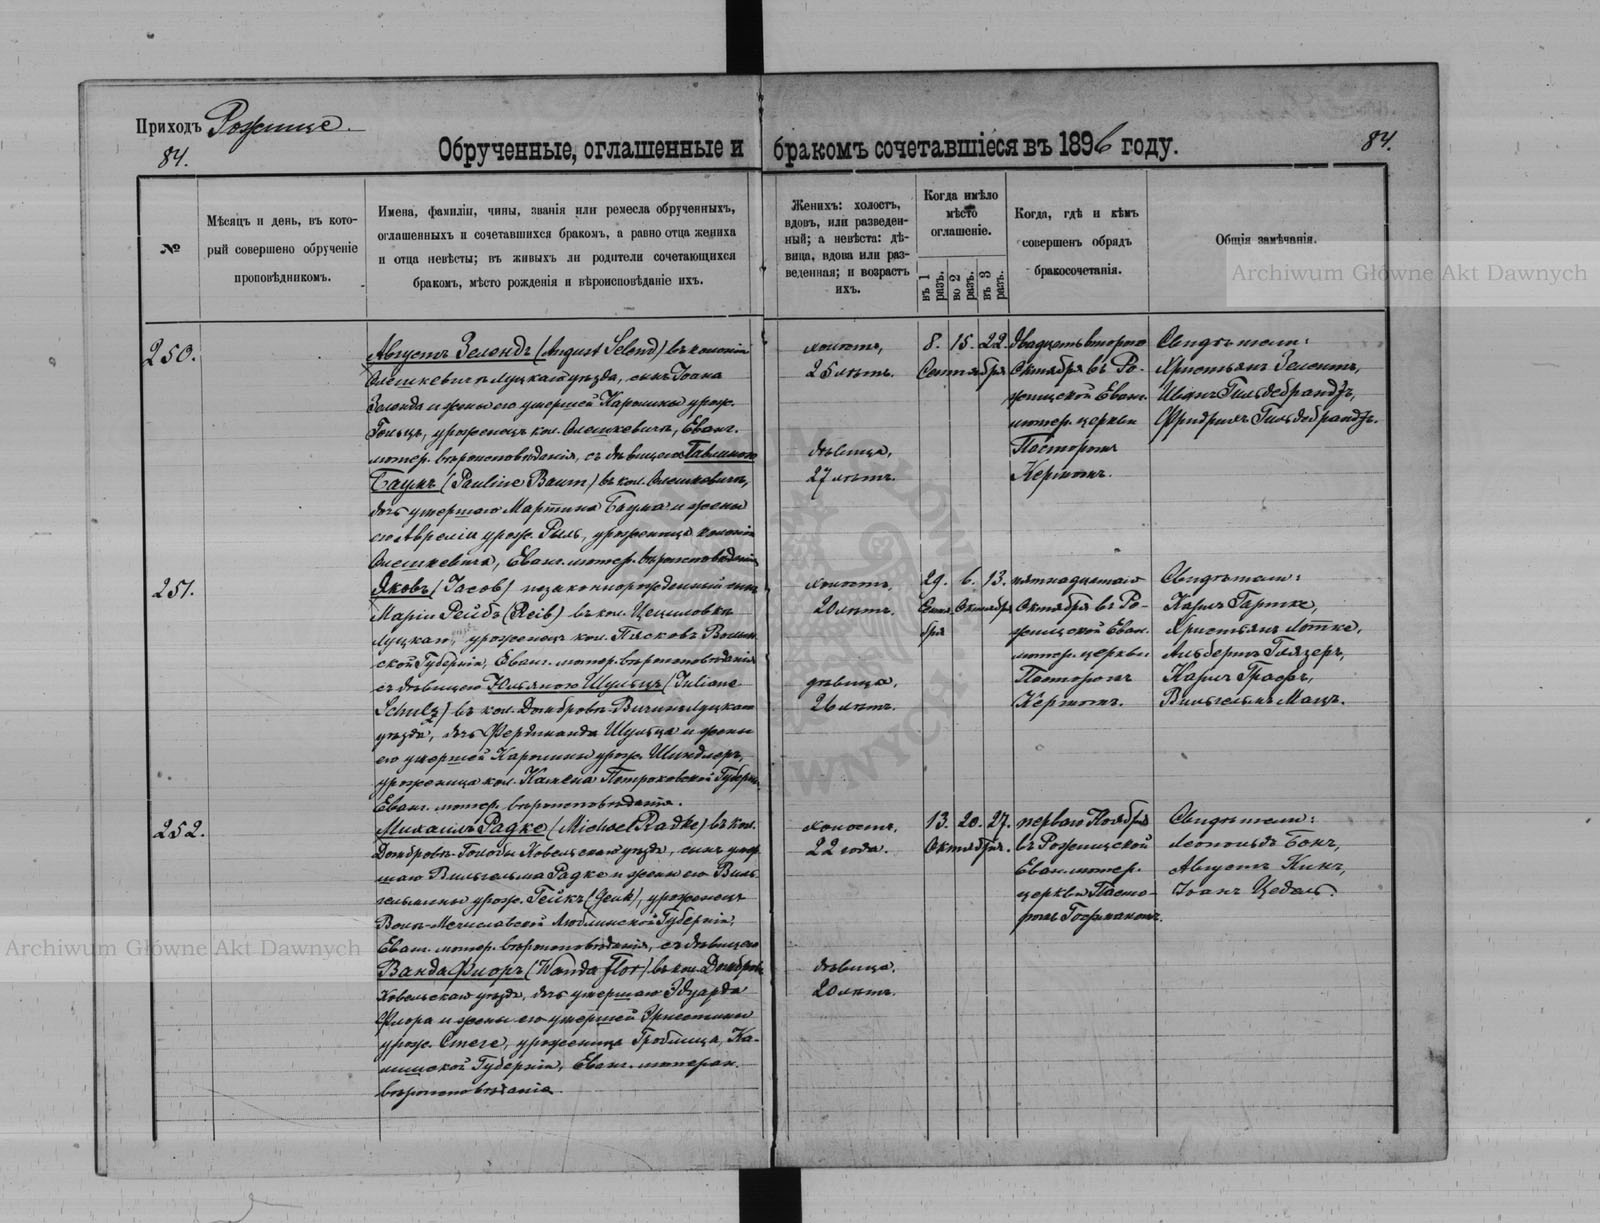 Приходъ Рожище.
84.
Обрученные, оглашенные и бракомъ сочетавшіеся въ 1896 году.
84.
№
Мѣсяцъ и день, въ кото-
рый совершено обрученіе
проповѣдникомъ.
Имена, фамиліи, чины, званія или ремесла обрученныхъ,
оглашенныхъ и сочетавшихся бракомъ, а равно отца жениха
и отца невѣсты; въ живыхъ ли родители сочетающихся
бракомъ, мѣсто рожденія и вѣроисповѣданіе ихъ.
Женихъ: холостъ,
вдовъ, или разведен-
ный; а невѣста: дѣ-
вица, вдова или раз-
веденная; и возрастъ
ихъ.
Когда имѣло
мѣсто
оглашеніе.
въ 1 разъ.
во 2 разъ.
въ 3 разъ.
Когда, гдѣ и кѣмъ
совершенъ обрядъ
бракосочетанія.
Общія замѣчанія.
Archiwum Główne Akt Dawnych
250.
Августъ Зелондъ (August Selond) въ колоніи
Олешкевичъ Луцкаго уѣзда, сынъ Іоана
Зелонда и жены его умершей Каролины урож.
Гольцъ, уроженецъ кол. Олешкевичъ, Еванг.
лютер. вѣроисповѣданія, съ дѣвицею Павлиною
Баумъ (Pauline Baum) въ кол. Олешкевичъ,
дочь умершаго Мартина Баума и жены
его Авреліи урож. Рыль, уроженица колоніи
Олешкевичъ, Еванг. лютер. вѣроисповѣданія
холостъ,
25 лѣтъ.
дѣвица,
27 лѣтъ.
8. 15. 22.
Сентября
двадцать второго
Октября въ Ро-
жищской Еванг.
лютер. церкви
Пасторомъ
Кермомъ.
Свидѣтели:
Христьянъ Зелентъ,
Гильдебрандтъ,
Фридрихъ Гильдебрандтъ.
251.
Яковъ (Jacob) незаконнорожденный сынъ
Маріи Рейбъ (Reib) въ кол. Цецилевкѣ
Луцкаго, уроженецъ кол. Пясковъ Волын-
ской Губерніи, Еванг. лютер. вѣроисповѣданія
съ дѣвицею Юльяною Шульцъ (Juliane
Schulz) въ кол. Домбровѣ Луцкаго
уѣзда, дочь Фердинанда Шульца и жены
его умершей Каролины урож. Шиндлеръ,
уроженица кол. Камена Петроковской Губерн.
Еванг. лютер. вѣроисповѣданія.
холостъ,
20 лѣтъ.
дѣвица,
26 лѣтъ.
29. 6. 13.
Сентя- Октября
бря
пятнадцатаго
Октября въ Ро-
жищской Еван.
лютер. церкви
Пасторомъ
Кермомъ.
Свидѣтели:
Карлъ Гартке,
Христьянъ Лотке,
Альбертъ Глязеръ,
Карлъ Графъ,
Вильгельмъ Мацъ.
252.
Михаилъ Радке (Michael Radke) въ кол.
Домбровѣ-Голобы Ковельскаго уѣзда, сынъ умер-
шаго Вильгельма Радке и жены его Виль-
гельмины урож. Гейкъ, уроженецъ
Воли-Мечиславской Люблинской Губерніи,
Еван. лютер. вѣроисповѣданія, съ дѣвицею
Ванда Флоръ (Wanda Flor) въ кол. Домбровѣ
Ковельскаго уѣзда, дочь умершаго Эдуарда
Флора и жены его умершей Эрнестины
урож. Стеге, уроженица Гродлица, Ка-
лишской Губерніи, Еванг. лютеран.
вѣроисповѣданія
холостъ,
22 года.
дѣвица,
20 лѣтъ.
13. 20. 27.
Октября.
перваго Ноября
въ Рожищской
Еван. лютер.
церкви Пасто-
ромъ Гофманомъ.
Свидѣтели:
Леопольдъ Бонъ,
Августъ Кинъ,
Іоанъ Цебель
Archiwum Główne Akt Dawnych